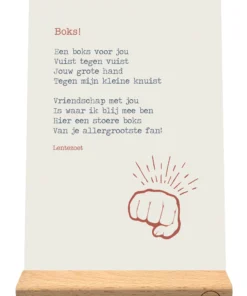 Boks!
Een boks voor jou
Vuist tegen vuist
Jouw grote hand
Tegen mijn kleine knuist
Vriendschap met jou
Is waar ik blij mee ben
Hier een stoere boks
Van je allergrootste fan!